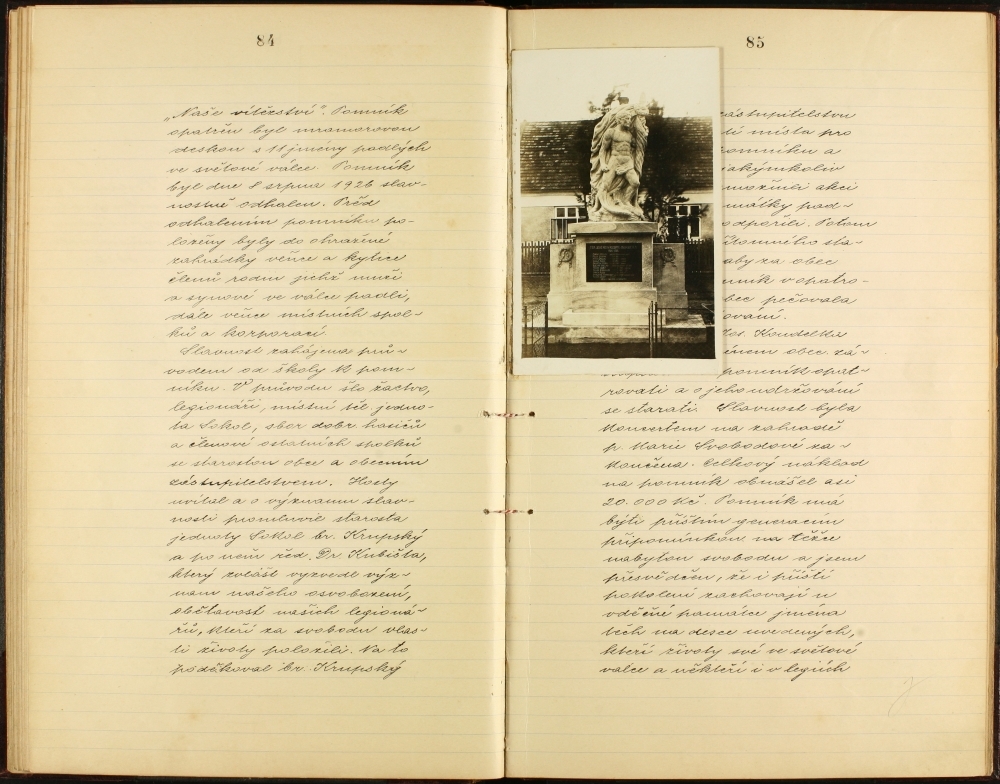 84
„Naše vítězství". Pomník
opatřen byl mramorovou
deskou s 11 jmény padlých
ve světové válce. Pomník
byl dne 8 srpna 1926 slav-
nostně odhalen. Před
odhalením pomníku po-
loženy byly do ohražené
zahrádky věnce a kytice
členů rodin jichž muži
a synové ve válce padli,
dále věnce místních spol-
ků a korporací
Slavnost zahájena prů-
vodem od školy k pom-
níku. V průvodu šlo žactvo,
legionáři, místní těl. jedno-
ta Sokol, sbor dobr. hasičů
a členové ostatních spolků
se starostou obce a obecním
zastupitelstvem. Hosty
uvítal a o významu slav-
nosti promluvil starosta
jednoty Sokol br. Krupský
a po něm řed. Dr. Kubišta,
který zvlášt vyzvedl výz-
nam našeho osvobození,
obětavost našich legioná-
řů, kteří za svobodu vlas-
ti životy položili. Na to
poděkoval br. Krupský
85
zástupitelstvu
místa pro
pomníku a
jakýmkoliv
možnili akci
památky pad-
odpořili. Potom
přítomného sta-
aby za obec
mník v opatro-
bec pečovala
ování.
Jos. Koudelka
ménem obec. zá-
pomník opat-
rovati a o jeho udržování
se starati. Slavnost byla
koncertem na zahradě
p. Marie Svobodové za-
končena. Celkový náklad
na pomník obnášel asi
20.000 Kč. Pomník má
býti příštím generacím
připomínkou na těžce
nabytou svobodu a jsem
přesvědčen, že i příští
pokolení zachovají u
vděčné památce jména
těch na desce uvedených,
kteří životy své ve světové
válce a někteří i v legiích